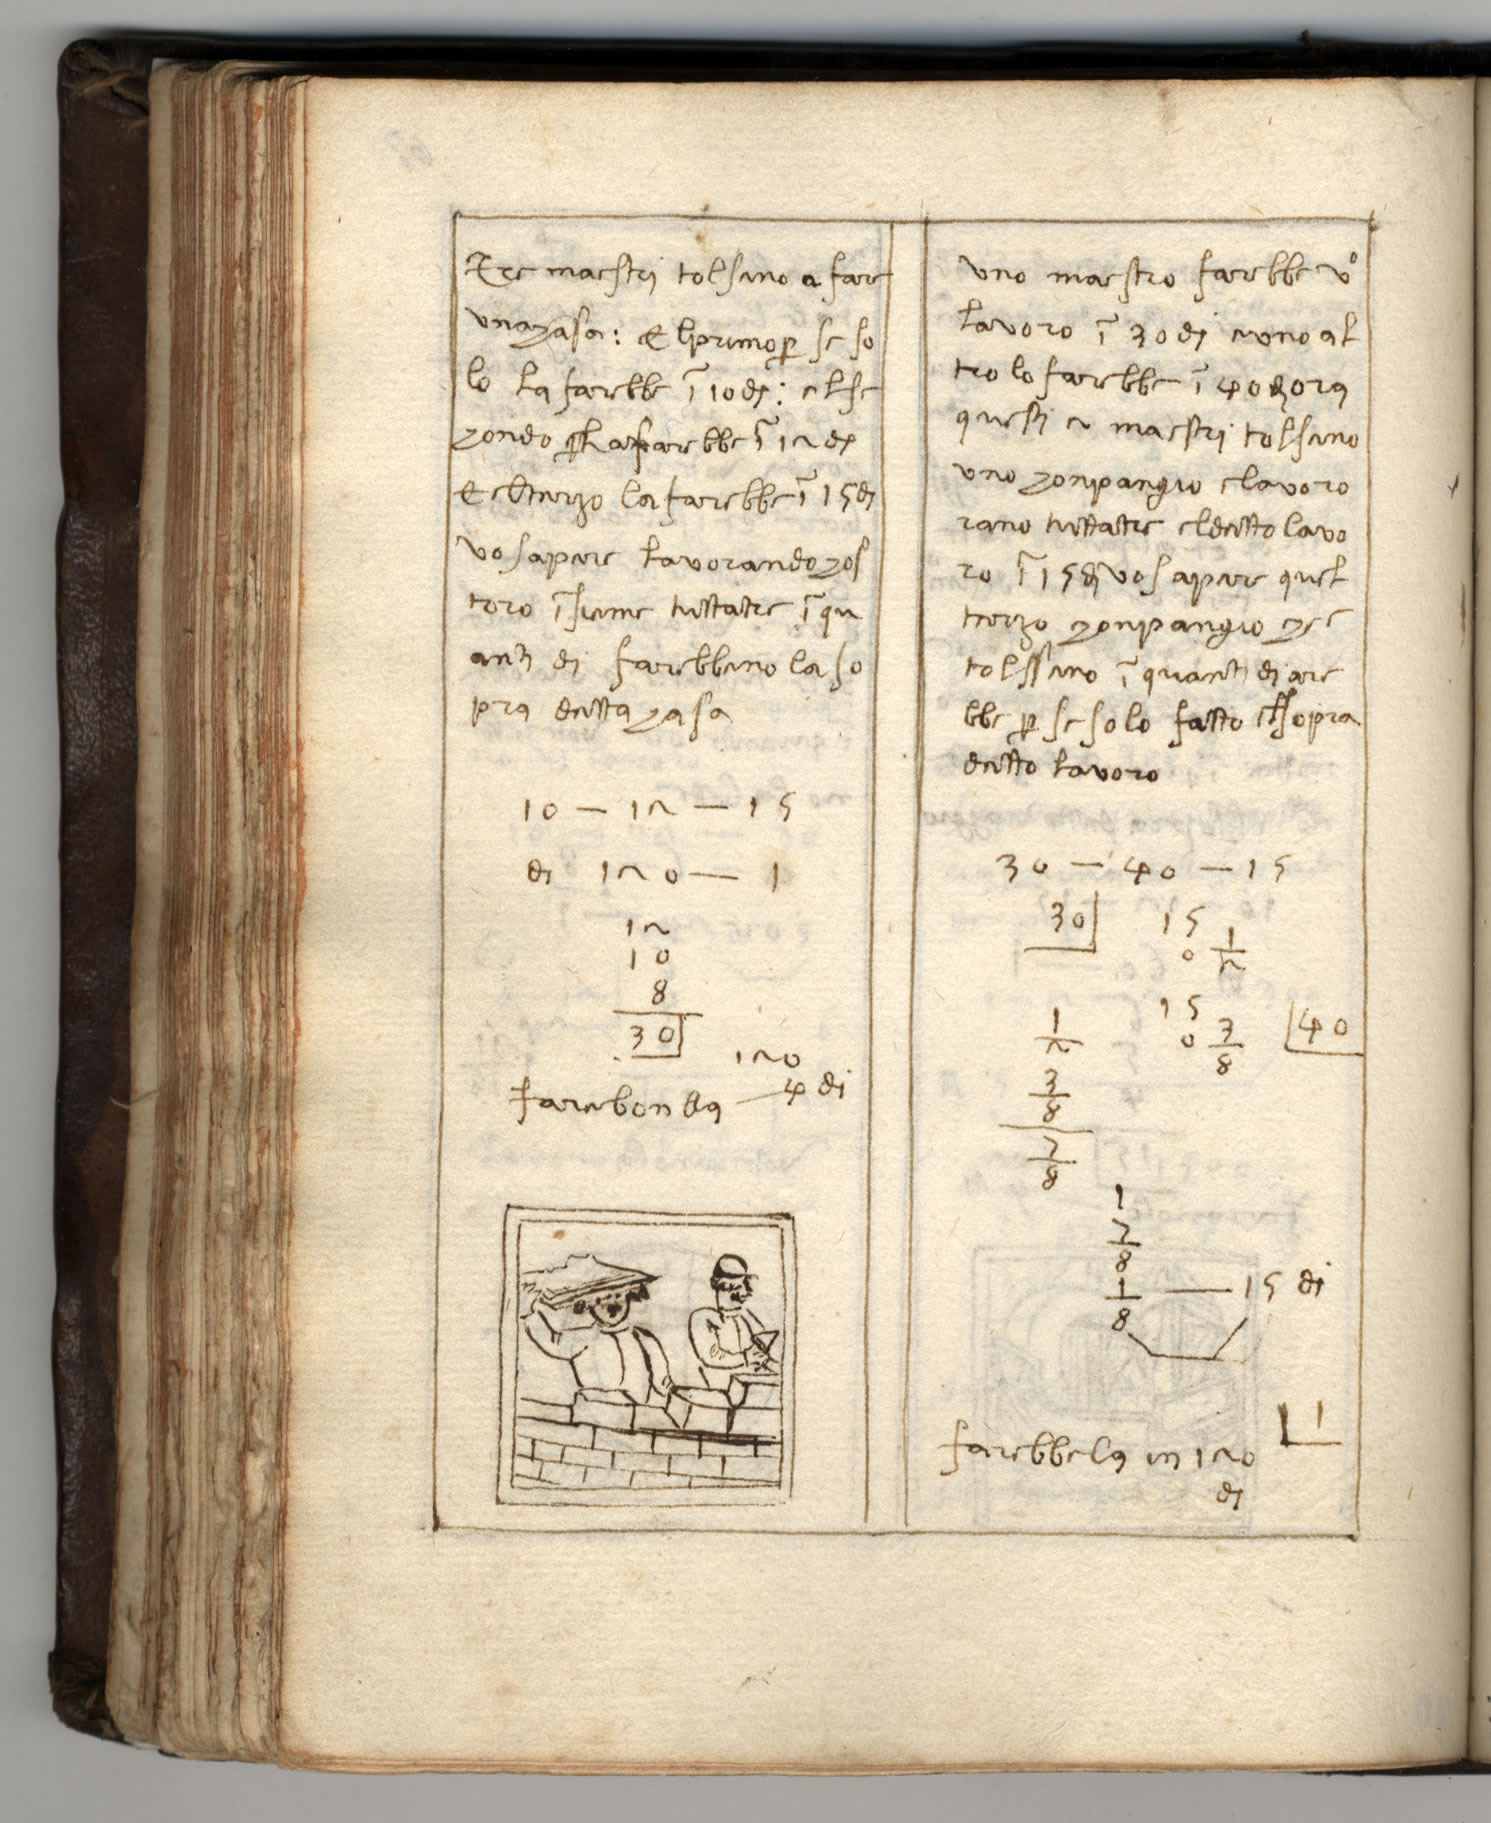 Tre maestri tolsano a fare
una chasa: El primo p se so
lo la farebbe ī 10 dj: else
chondo la farebbe ī 12 dj
E elterzo la farebbe ī 15 dj
vo sapere lavorando chos
toro īsieme tuttatre ī qu
anti di farebbano la so
pra detta chasa
10 — 12 — 15
di 120 — 1
12
10
8
30
120
farebonlla — 4 di
uno maestro farebbe uo
lavoro ī 30 dj e uno al
tro lo farebbe ī 40 di ora
questi 2 maestri tolsano
uno chonpangio e lavoro
rano tuttatre el detto lavo
ro ī 15 dj vo sapere quel
terzo chonpangio che
tolssano ī quanti dj are
bbe p se solo fatto el sopra
detto lavoro
30 — 40 — 15
30 15
0 1/2
15
0 3/8 40
1/2
3/8
7/8
1
7/8
1/8 — 15 di
1
farebbela in 120
dj